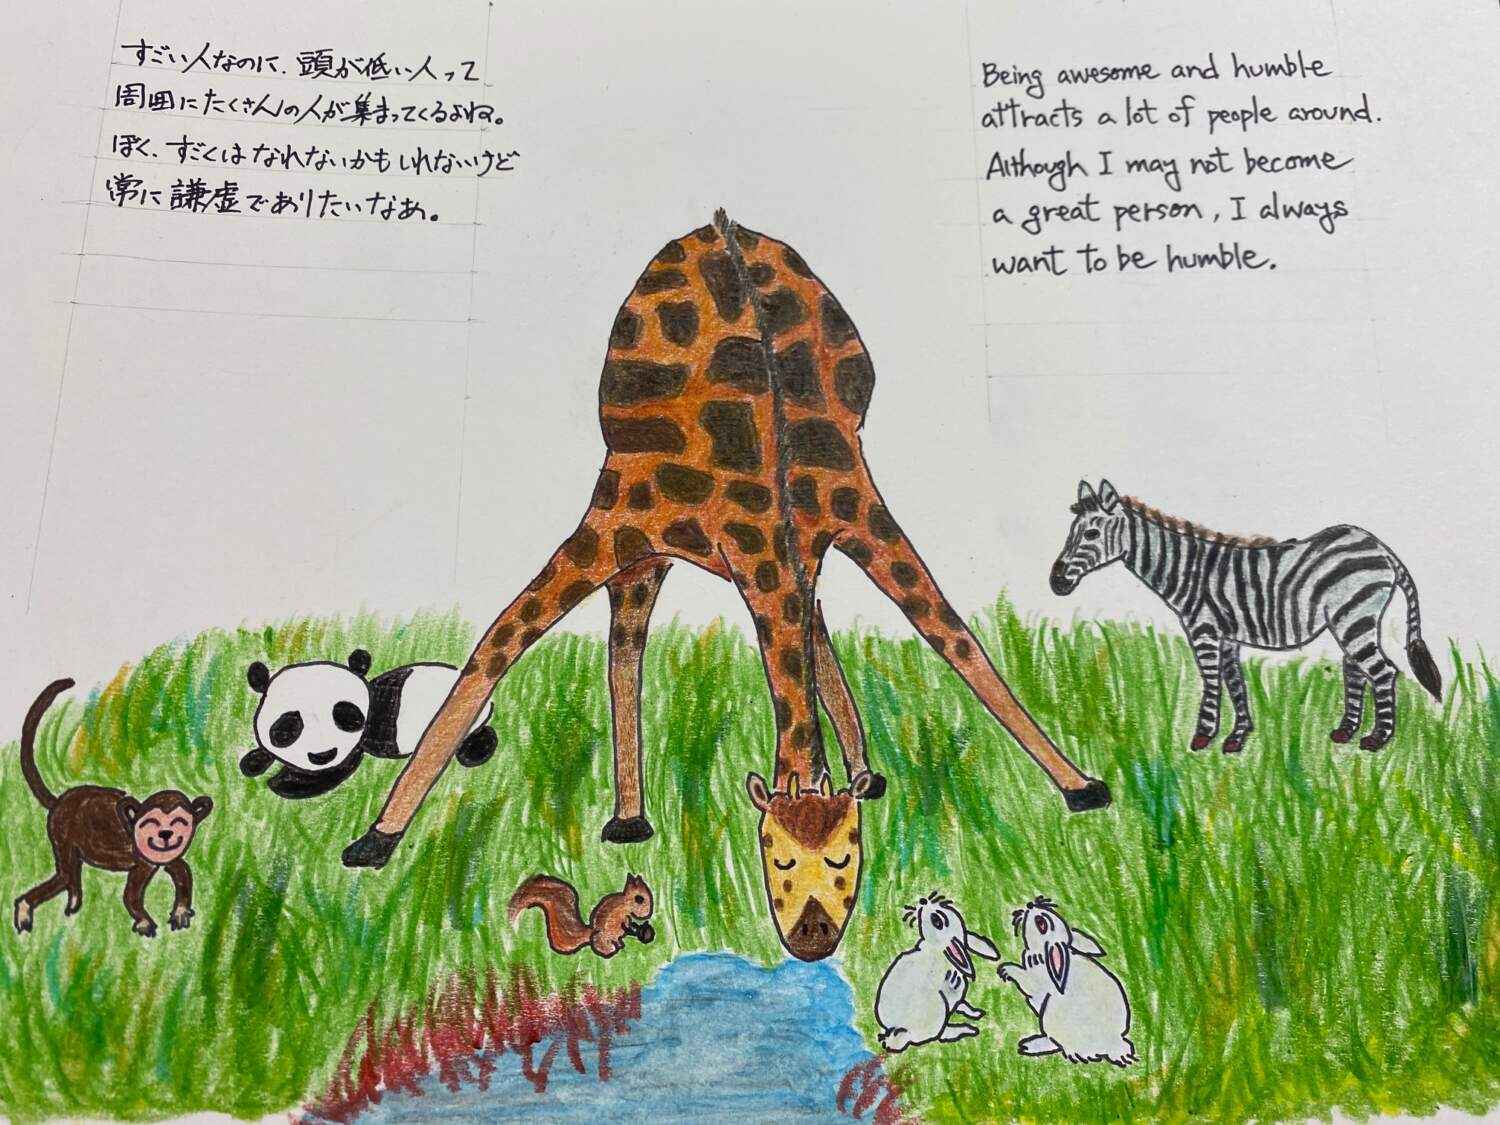 すごい人なのに、頭が低い人って
周囲にたくさんの人が集まってくるよね。
ぼく、すごくはなれないかもしれないけど
常に謙虚でありたいなあ。
Being awesome and humble
attracts a lot of people around.
Although I may not become
a great person, I always
want to be humble.